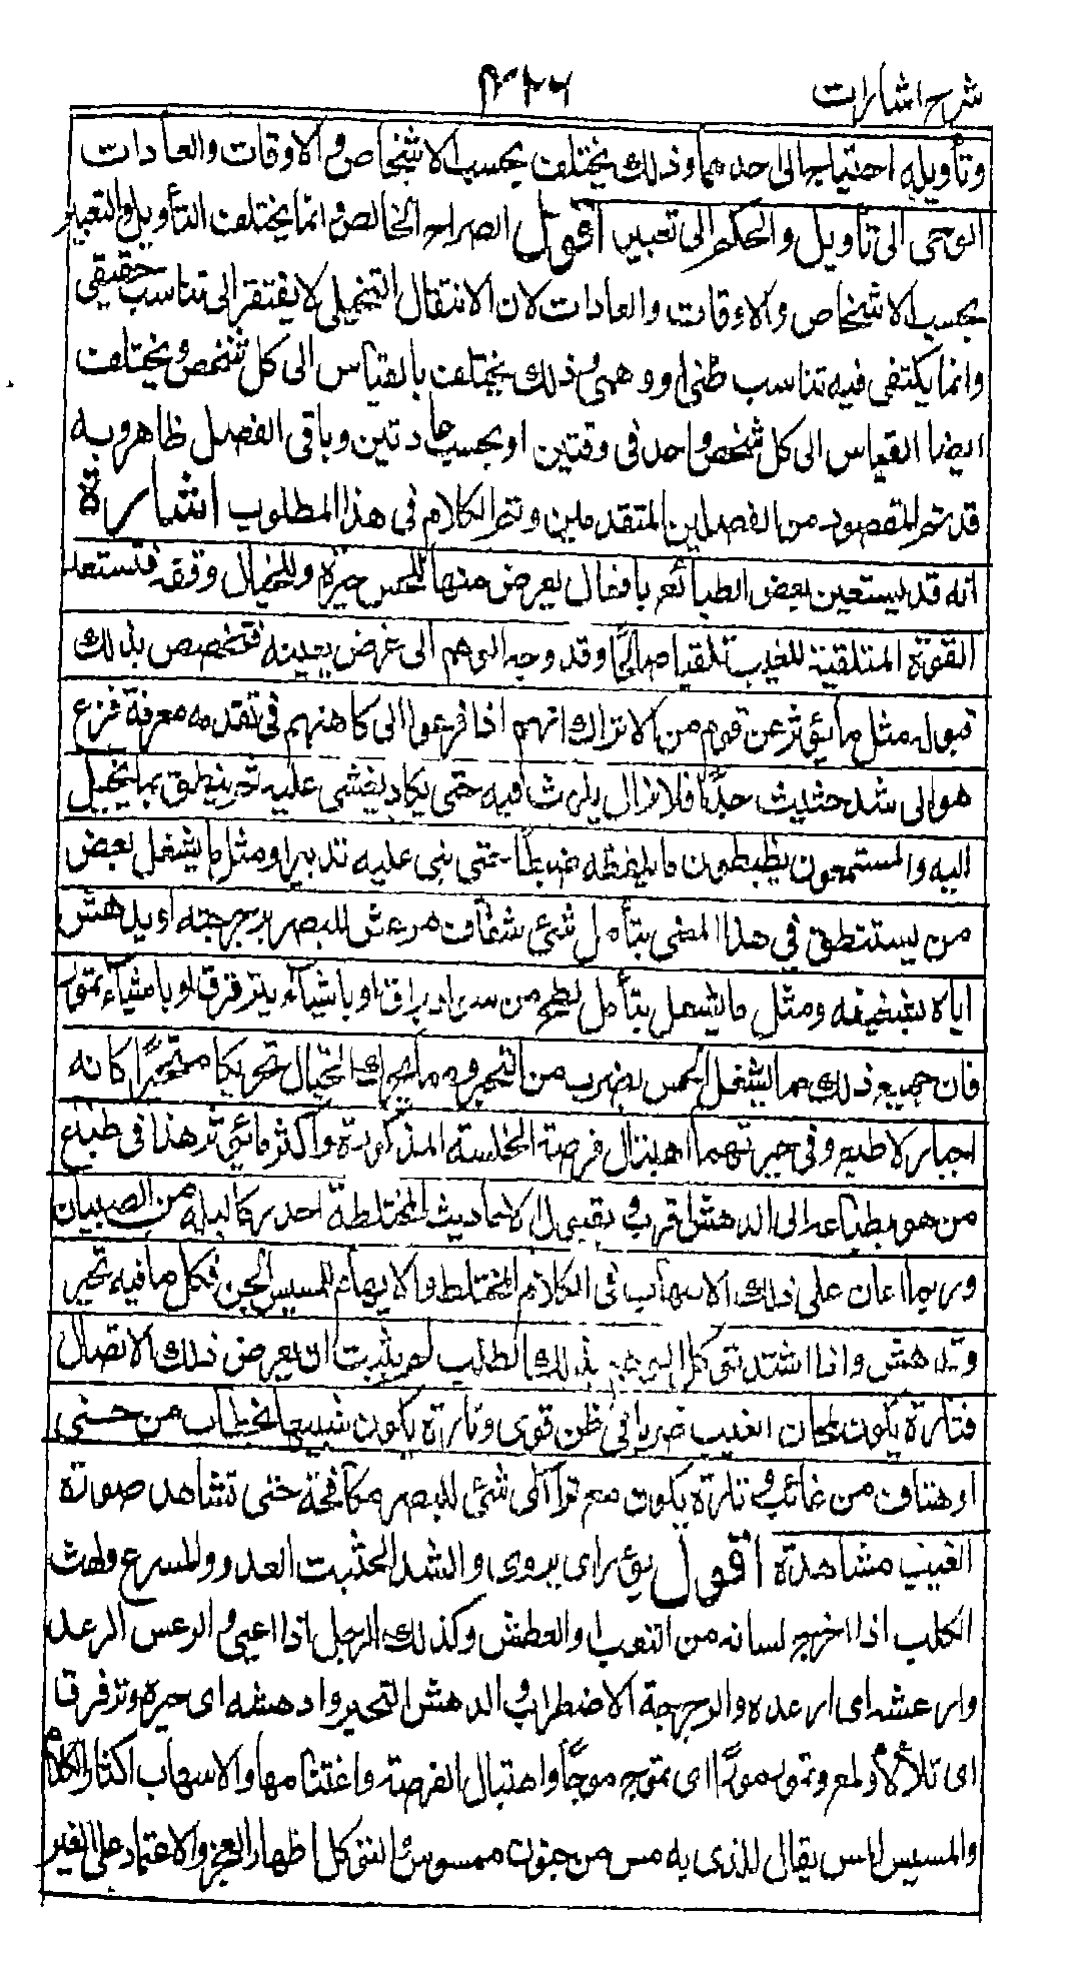 شرح اشارات
۴۲۶
وتأويله احتياجها الى احدهما وذلك يختلف بحسب الاشخاص والاوقات والعادات
الوحى الى تأويل والحكم الى تعبير اقول الصراح الخالص وانما يختلف التأويل والتعبير
بحسب الاشخاص والاوقات والعادات لان الانتقال التخيلى لا يفتقر الى تناسب حقيقى
وانما يكتفى فيه تناسب ظنى او وهمى وذلك يختلف بالقياس الى كل شخص ويختلف
ايضا القياس الى كل شخص واحد فى وقتين او بحسب عادتين وباقى الفصل ظاهر وبه
قد تم المقصود من الفصلين المتقدمين وتم الكلام فى هذا المطلوب اشارة
انه قد يستعين بعض الطبائع بافعال يعرض منها للحس حيرة وللخيال وقفة فتستعد
القوة المتلقية للغيب تلقيا صالحا وقد وجه الوهم الى غرض بعينه فتخصص بذلك
قبوله مثل ما يؤثر عن قوم من الاتراك انهم اذا فزعوا الى كاهنهم فى تقدمه معرفة فزع
هو الى شد حثيث جدا فلا يزال يلهث فيه حتى يكاد يغشى عليه ثم ينطق بما يخيل
اليه والمستمعون يظبطون ما يلفظه ضبطا حتى يبنى عليه تدبيرا ومثل ما يشغل بعض
من يستنطق فى هذا المعنى بتأمل شئ شفاف مرعش للبصر برجرجته او يدهش
اياه بشفيفه ومثل ما يشغل بتأمل لطخ من سواد براق او باشياء يترقرق او باشياء تمور
فان جميع ذلك مما يشغل الحس بضرب من التحير ومما يحرك الخيال تحريكا متحيرا كانه
اجبار لا طبع وفى حيرتهما اهتبال فرصة الخلسة المذكورة واكثر ما يؤثر هذا فى طباع
من هو بطباعه الى الدهش اقرب وبقبول الاحاديث المختلطة احدر كالبله من الصبيان
وربما اعان على ذلك الاسهاب فى الكلام المختلط والايهام لمسيس الجن وكل ما فيه تحير
وتدهش واذا اشتد توكل الوهم بذلك الطلب لم يلبث ان يعرض ذلك الاتصال
فتارة يكون لمحان الغيب ضربا فى ظن قوى وتارة يكون شبيها بخطاب من جنى
او هتاف من غائب وتارة يكون مع ترآائى شئ للبصر مكافحة حتى تشاهد صورة
الغيب مشاهدة اقول يؤثر اى يروى والشد الحثيث العدو والمسرع ولهث
الكلب اذا اخرج لسانه من التعب او العطش وكذلك الرجل اذا اعيى والرعش الرعد
وارعشه اى ارعده والرجرجة الاضطراب والدهش التحير وادهشه اى حيره وترقرق
اى تلألأ ولمع وتمور مورا اى تموج موجا واهتبال الفرصة واغتنامها والاسهاب اكثار الكلام
والمسيس المس يقال للذى به مس من جنون ممسوس التوكل اظهار العجز والاعتماد على الغير